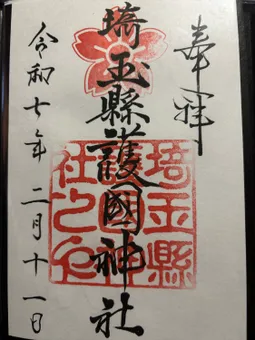 奉拝
埼玉縣護國神社
埼玉縣
護國神
社之印
令和七年 二月十一日